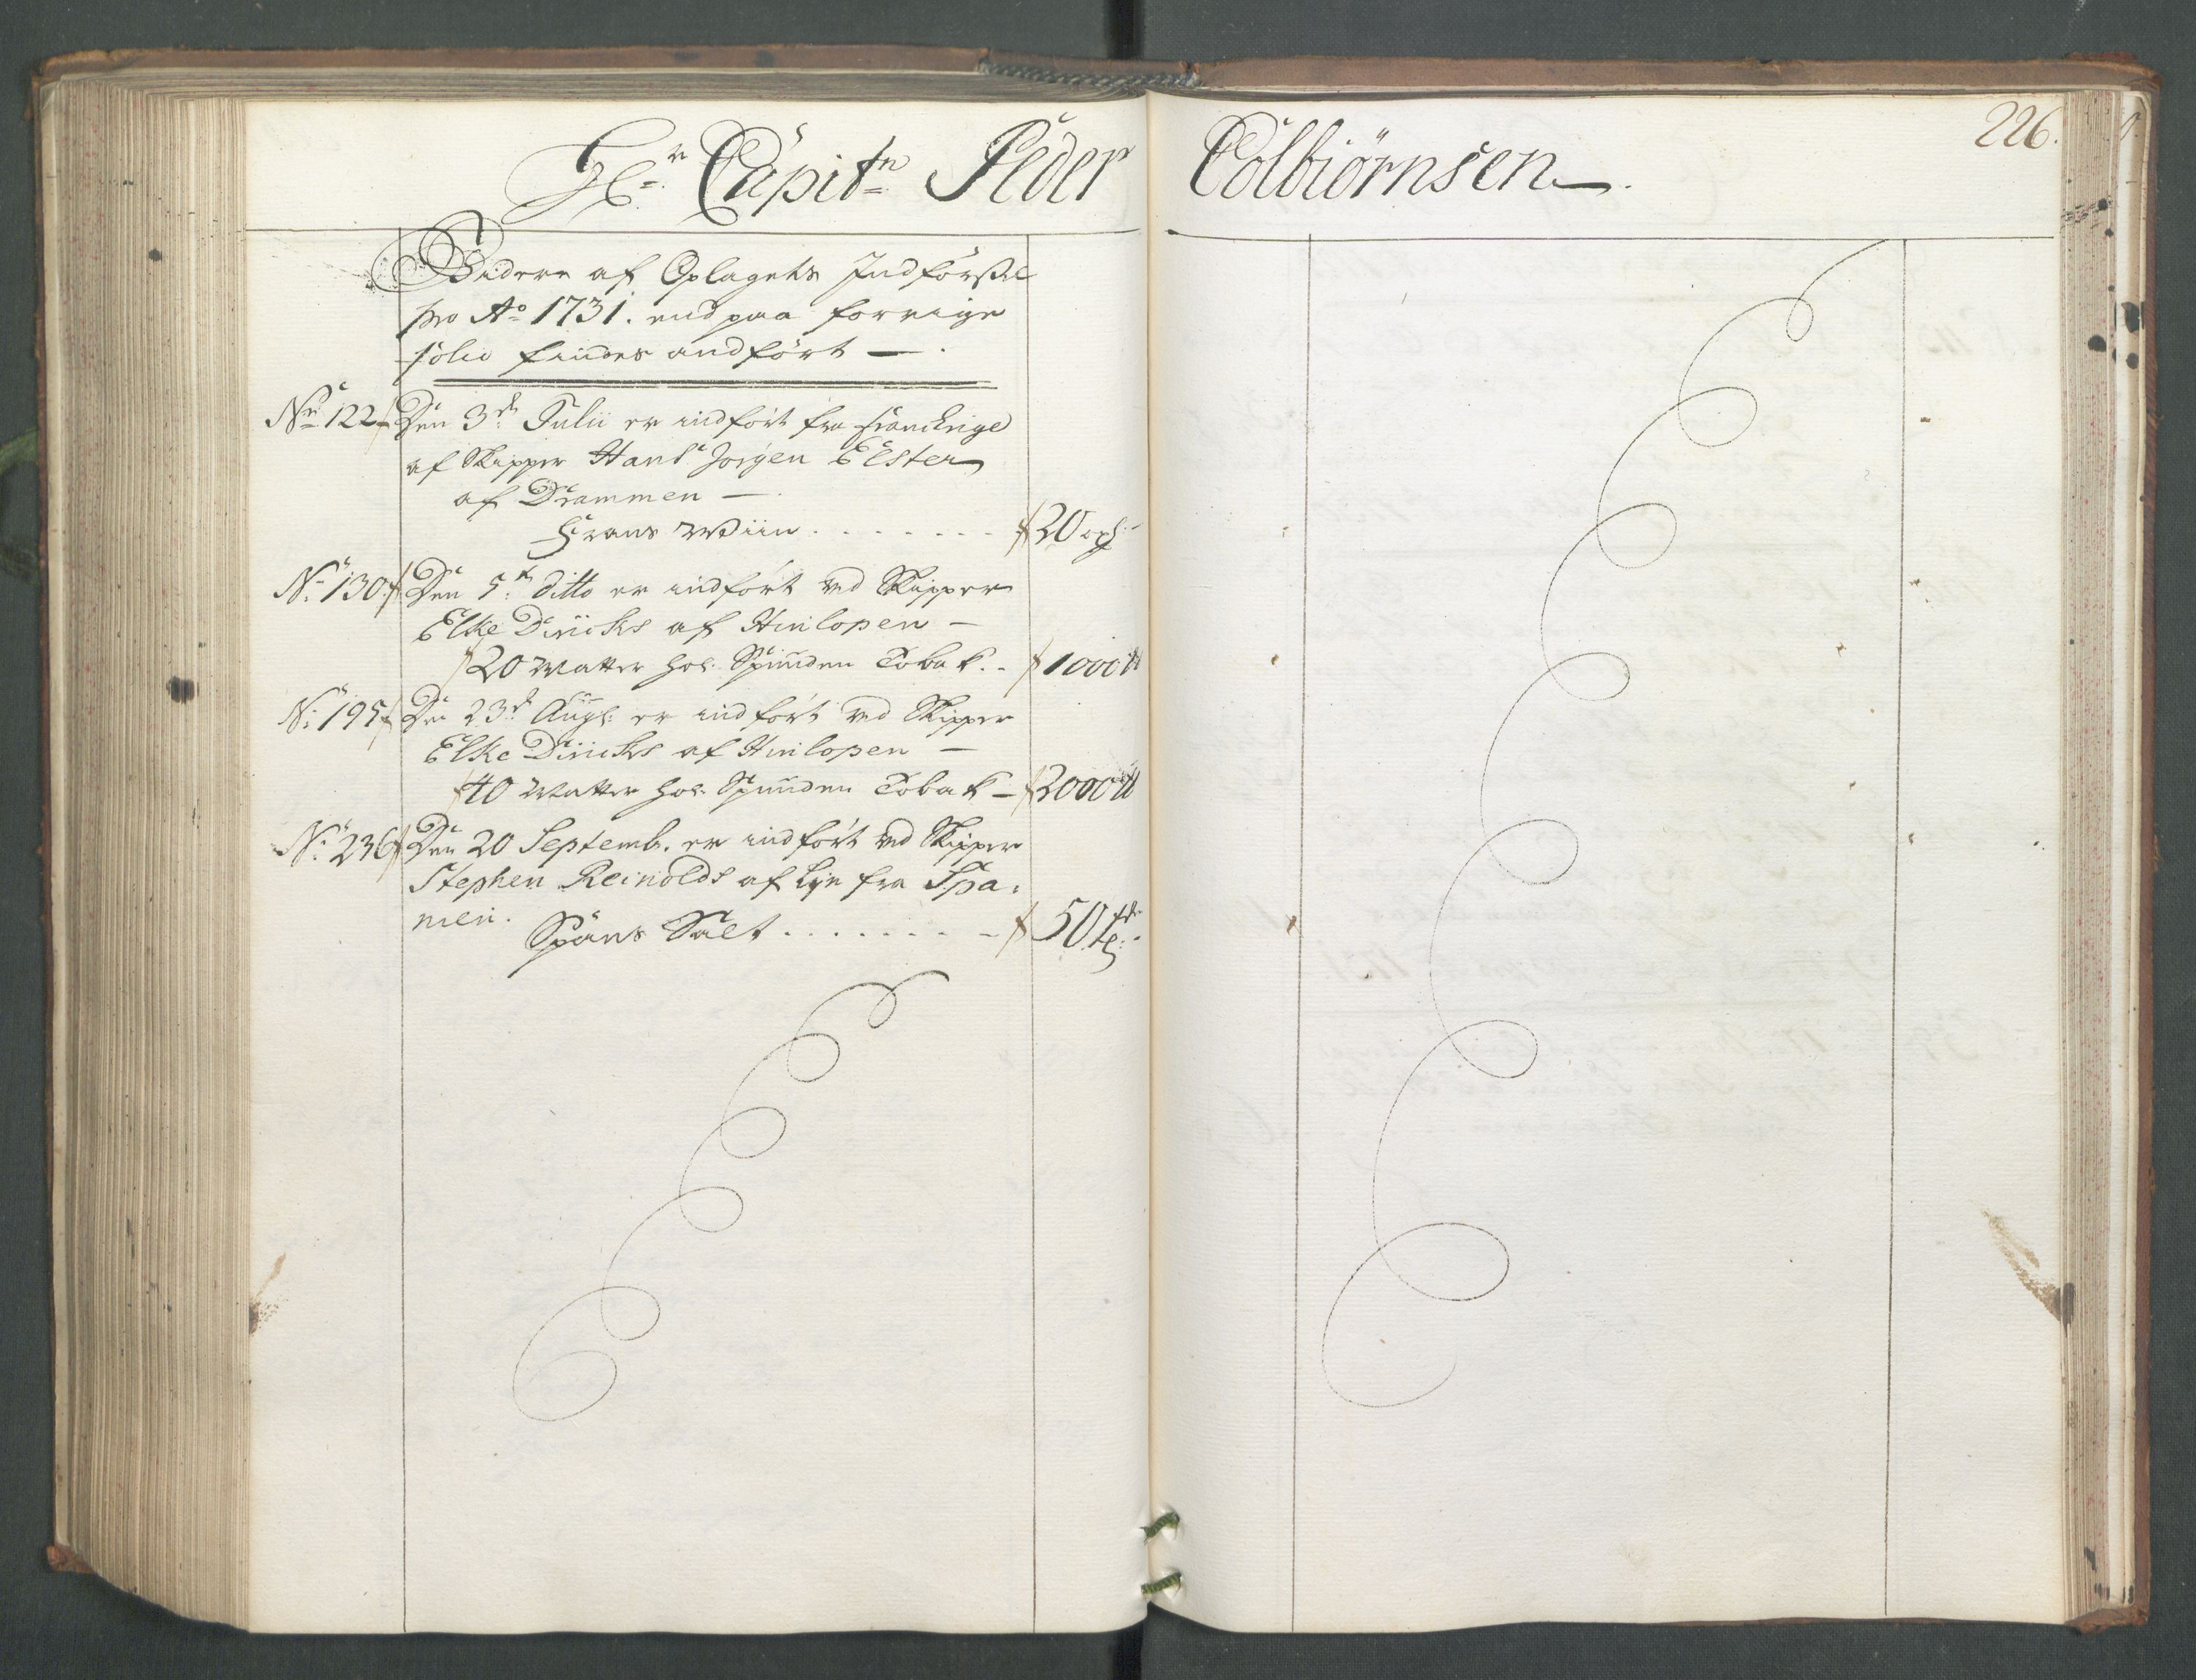 Hr. Capitn Peder Colbiörnsen
226.
Videre af Oplagets Indförsel
pro Ao 1731. end paa forrige
folio findes andfört
No 122 Den 3d Julii er indfört fra Franckrige
af Skipper Hans Jörgen Elster
af Drammen
Frans Wiin 20 oxh:
No 130 Den 5t ditto er indfört ved Skipper
Elke Diricks af Hinlopen
20 Matter hol: Spunden Toback 1000 ℔
No 195 Den 23d Aug: er indfört ved Skipper
Elke Diricks af Hinlopen
40 Matter hol: Spunden Toback 2000 ℔
No 236 Den 20 Septemb. er indfört ved Skipper
Stephen Reinolds af Lyn fra Spa:
nien.
Spans Salt 50